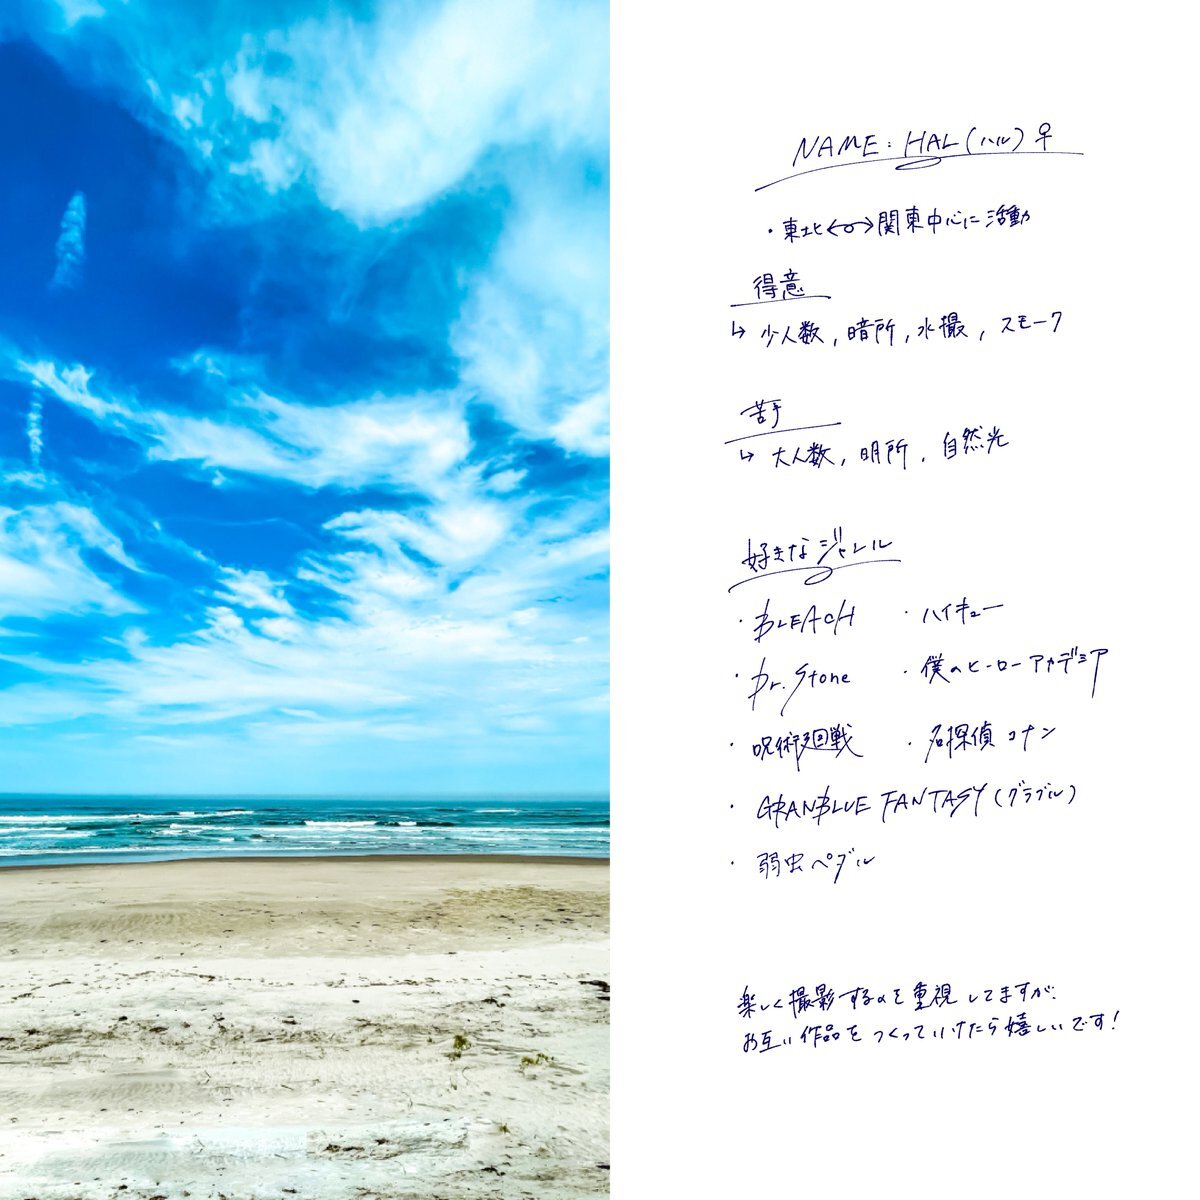 NAME: HAL(ハル)♀
・東北↔関東中心に活動
得意
↳ 少人数, 暗所, 水撮, スモーク
苦手
↳ 大人数, 明所, 自然光
好きなジャンル
・BLEACH ・ハイキュー
・Dr. Stone ・僕のヒーローアカデミア
・呪術廻戦 ・名探偵コナン
・GRANBLUE FANTASY(グラブル)
・弱虫ペダル
楽しく撮影するのを重視してますが、
お互い作品をつくっていけたら嬉しいです!